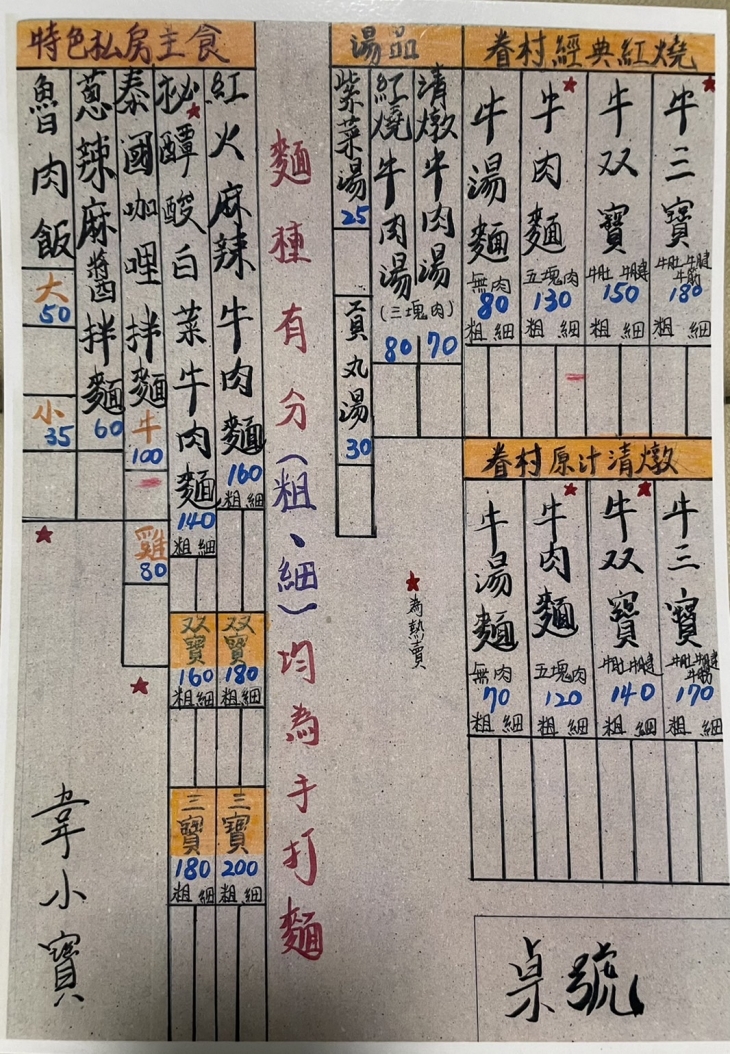 眷村經典紅燒
牛三寶
牛肚 牛腱
牛筋
180
粗 細
牛双寶
牛肚 牛腱
150
粗 細
牛肉麵
五塊肉
130
粗 細
牛湯麵
無肉
80
粗 細
眷村原汁清燉
牛三寶
牛肚 牛腱
牛筋
170
粗 細
牛双寶
牛肚 牛腱
140
粗 細
牛肉麵
五塊肉
120
粗 細
牛湯麵
無肉
70
粗 細
桌號
湯品
清燉牛肉湯
紅燒牛肉湯
(三塊肉)
80
70
紫菜湯
25
貢丸湯
30
★為熱賣
麵種有分(粗、細)均為手打麵
特色私房主食
紅火麻辣牛肉麵
160
粗 細
双寶
180
粗 細
三寶
200
粗 細
祕醰酸白菜牛肉麵
140
粗 細
双寶
160
粗 細
三寶
180
粗 細
泰國咖哩拌麵
牛
100
雞
80
蔥辣麻醬拌麵
60
魯肉飯
大
50
小
35
韋小寶